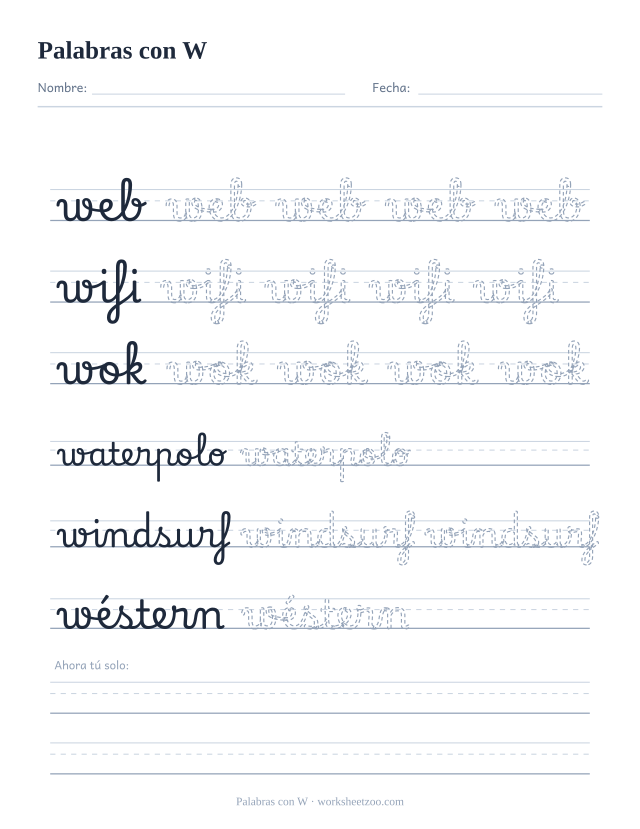 Palabras con W
Nombre: Fecha:
web web web web web
wifi wifi wifi wifi wifi
wok wok wok wok wok
waterpolo waterpolo
windsurf windsurf windsurf
wéstern wéstern
Ahora tú solo:
Palabras con W · worksheetzoo.com